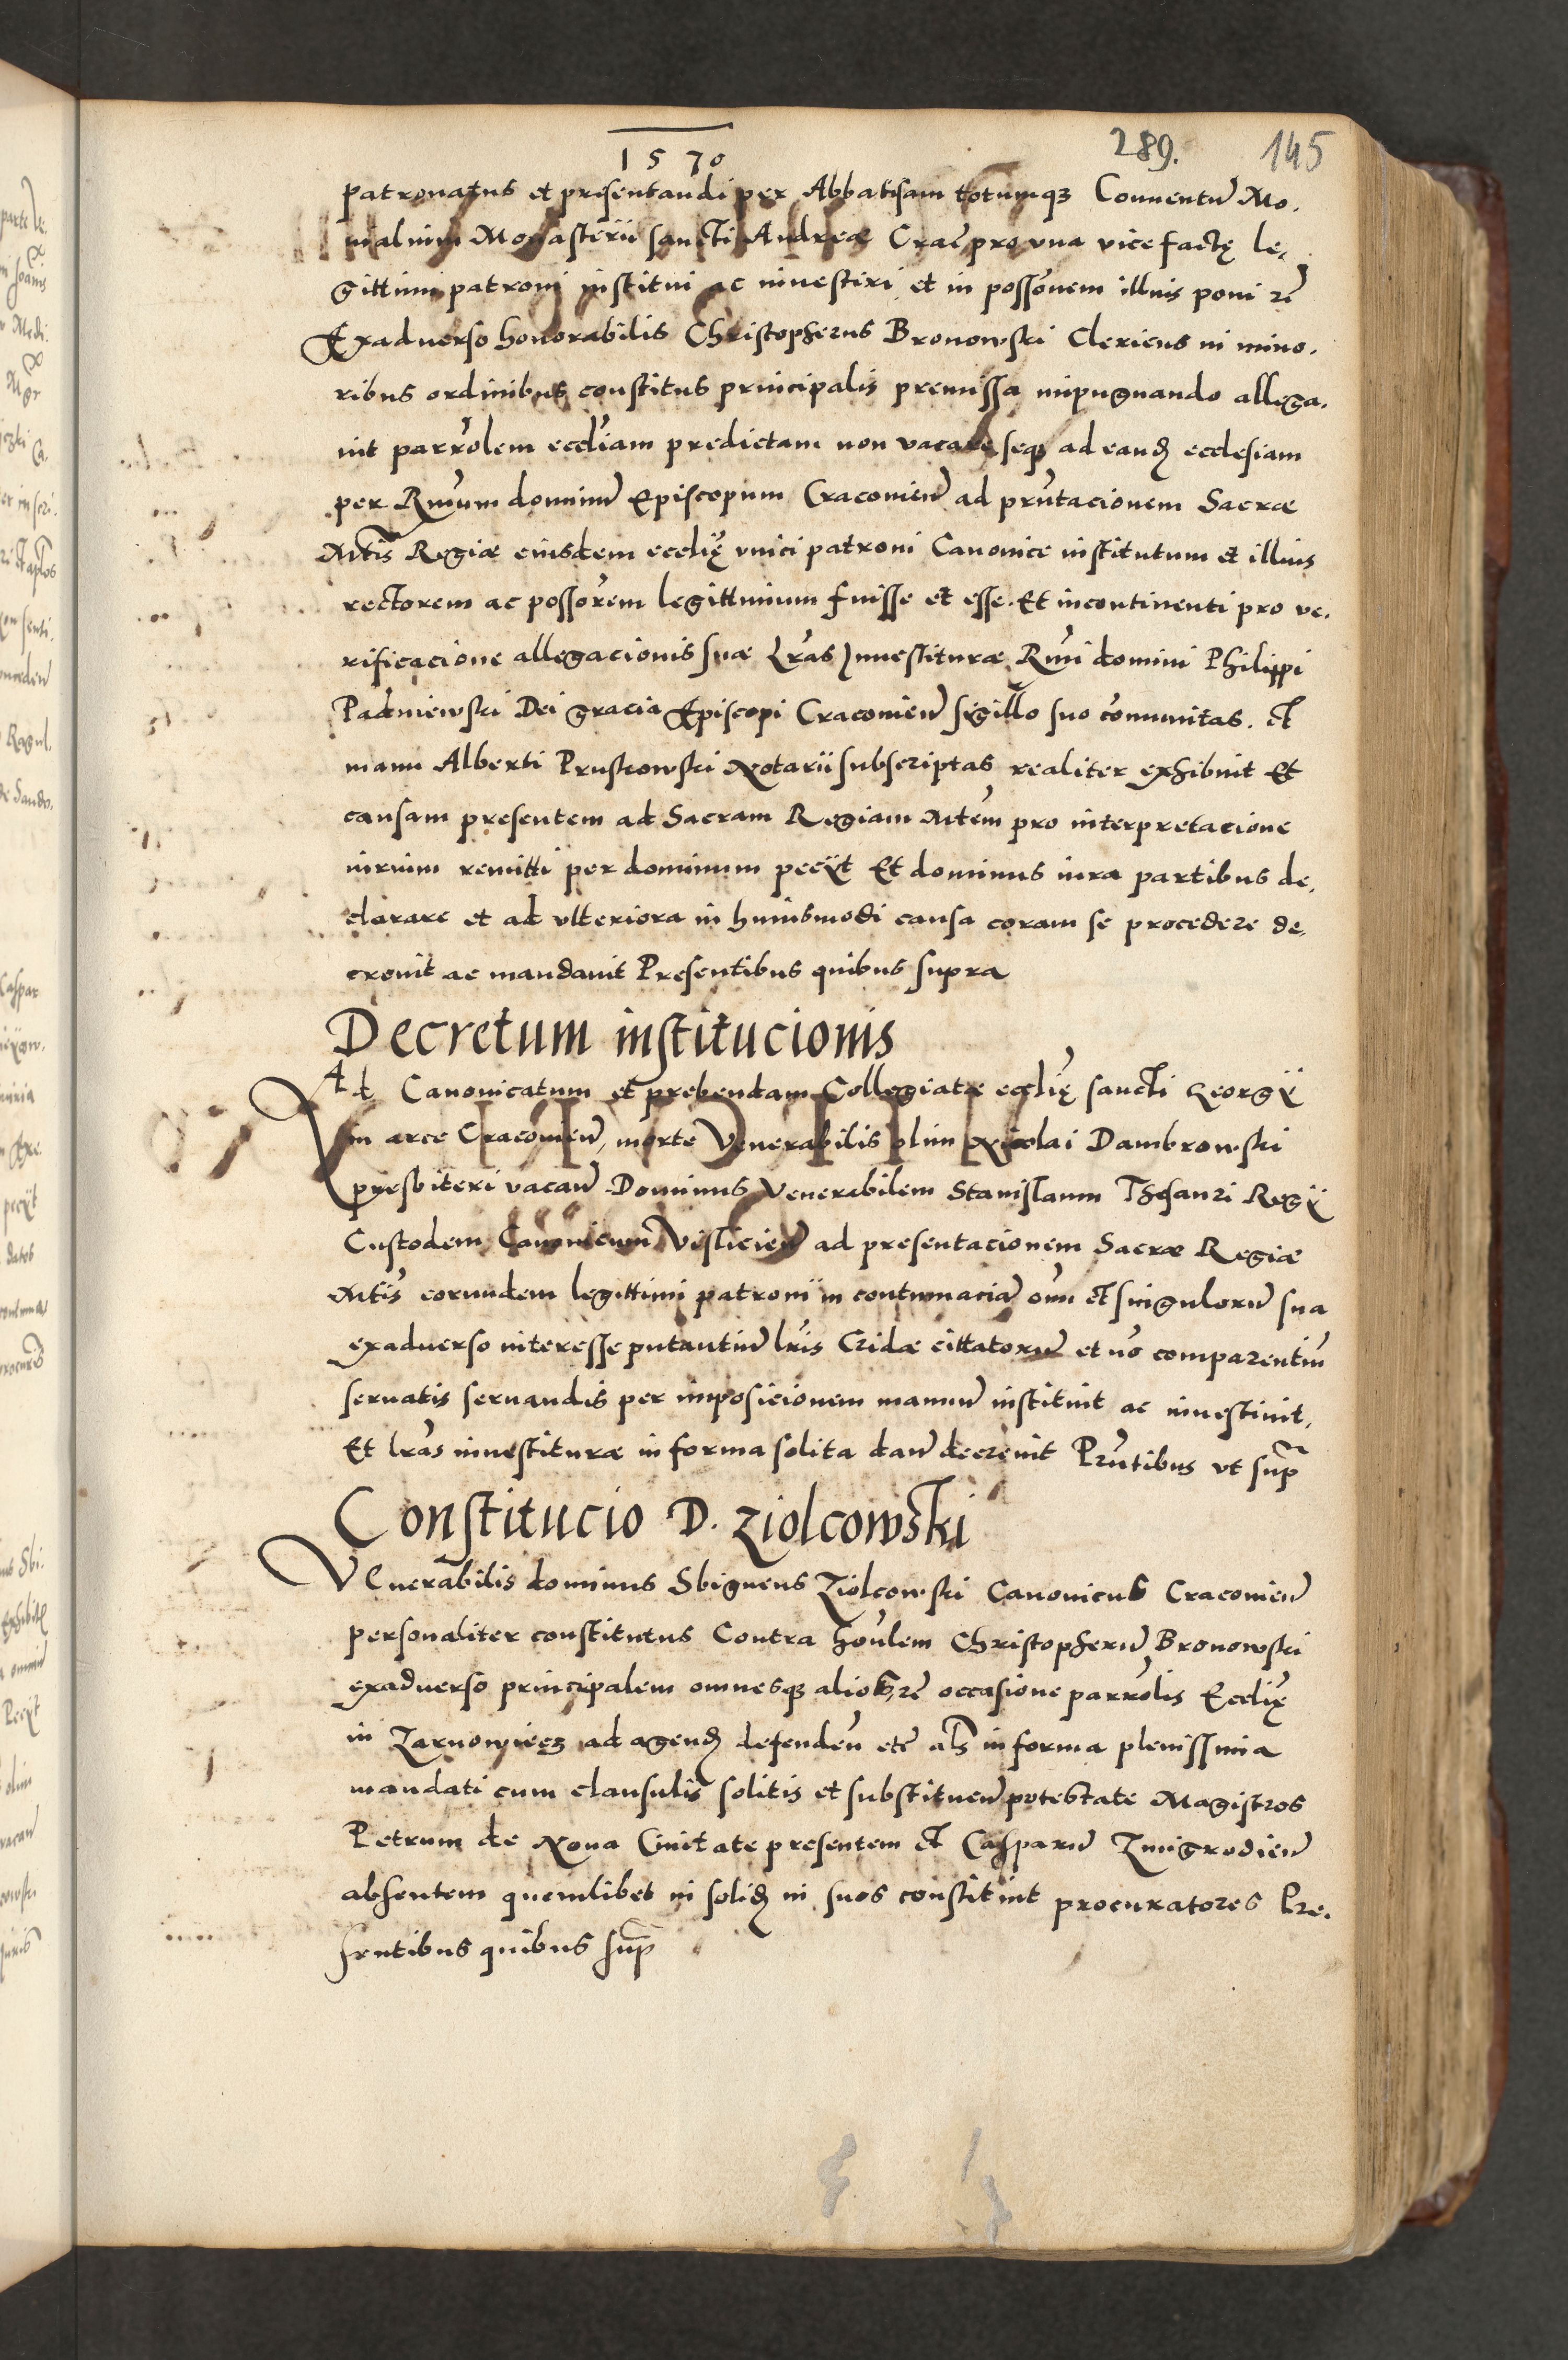 1570
289. 145
patronatus et presentandi per Abbatisam totumq3 Conuentũ Mo,
nialium Monasterii sancti Andreæ Crac̃ pro vna vice factę le,
gittimi patroni institui ac inuestiri et in possõnem illius poni rẽ
Exaduerso honorabilis Christopherus Bronowski Clericus in mino,
ribus ordinibus constitus principalis premissa impugnando allega,
uit parrõlem eccliãm predictam non vacare seq3 ad eand̃ ecclesiam
per Rmũm dominũ Episcopum Cracovieñ ad prñtacionem Sacræ
Mtis Regiæ eiusdem ecclię vnici patroni Canonice institutum et illius
rectorem ac possõrem legittimum fuisse et esse. Et incontinenti pro ve,
rificacione allegacionis suæ Lrãs Inuestituræ Rmi domini Philippi
Padniewski Dei gracia Episcopi Cracovieñ sigillo suo cõmunitas. et
manu Alberti Pruskowski Notarii subscriptas realiter exhibuit Et
causam presentem ad Sacram Regiam Mtem pro interpretacione
iurium remitti per dominum peciit Et dominus iura partibus de,
clarare et ad vlteriora in huiusmodi causa coram se procedere de,
creuit ac mandauit Presentibus quibus supra
Decretum institucionis
Ad Canonicatum et prebendam Collegiatæ ecclię sancti Georgii
in arce Cracovieñ, morte Venerabilis olim Nicolai Dambrowski
presbiteri vacañ Dominus Venerabilem Stanislaum Thesauri Regii
Custodem Canonicum Vislicieñ ad presentacionem Sacræ Regiæ
Mtis eorundem legittimi patroni in contumaciã oim et singulorũ sua
exaduerso interesse putantiũ lris Cridæ cittatorũ et nõ comparentiũ
seruatis seruandis per imposicionem manuũ instituit ac inuestiuit,
Et lrãs inuestituræ in forma solita dañ decreuit Prñtibus vt sup̃
Constitucio D. Ziolcowski
VEnerabilis dominus Sbigneus Ziolcowski Canonicus Cracovieñ
personaliter constitutus Contra hoñlem Christopherũ Bronowski
exaduerso principalem omnesq3 alios rẽ occasione parrõlis Eccliæ
in Zarnowiecz ad agend̃ defendeñ etc̃ als in forma plenissima
mandati cum clausulis solitis et substitueñ potestate Magistros
Petrum de Noua Ciuitate presentem et Casparũ Zmigrodieñ
absentem quemlibet in solid̃ in suos constituit procuratores Pre,
sentibus quibus sup̃